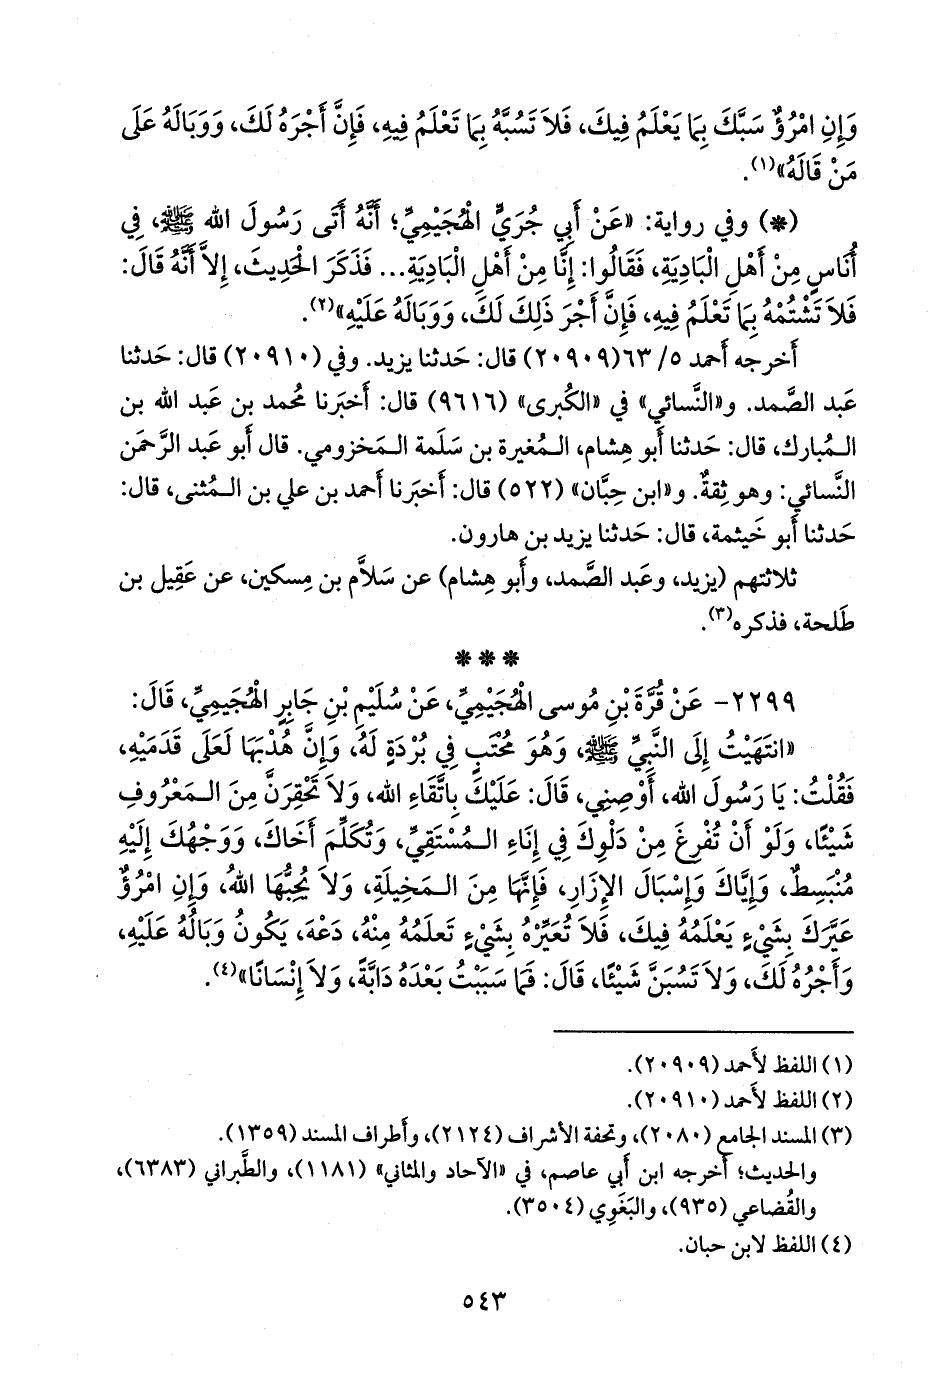 وَإِنِ امْرُؤٌ سَبَّكَ بِمَا يَعْلَمُ فِيكَ، فَلاَ تَسُبَّهُ بِمَا تَعْلَمُ فِيهِ، فَإِنَّ أَجْرَهُ لَكَ، وَوَبَالَهُ عَلَى
مَنْ قَالَهُ»(١).
(*) وفي رواية: «عَنْ أَبِي جُرَيٍّ الْهُجَيْمِيِّ؛ أَنَّهُ أَتَى رَسُولَ الله ﷺ، فِي
أُنَاسٍ مِنْ أَهْلِ الْبَادِيَةِ، فَقَالُوا: إِنَّا مِنْ أَهْلِ الْبَادِيَةِ... فَذَكَرَ الْحَدِيثَ، إِلاَّ أَنَّهُ قَالَ:
فَلاَ تَشْتُمْهُ بِمَا تَعْلَمُ فِيهِ، فَإِنَّ أَجْرَ ذَلِكَ لَكَ، وَوَبَالَهُ عَلَيْهِ»(٢).
أَخرجه أَحمد ٥/ ٦٣(٢٠٩٠٩) قال: حَدثنا يزيد. وفي (٢٠٩١٠) قال: حَدثنا
عَبد الصَّمد. و«النَّسائي» في «الكُبرى» (٩٦١٦) قال: أَخبَرنا مُحمد بن عَبد الله بن
الـمُبارك، قال: حَدثنا أَبو هِشام، الـمُغيرة بن سَلَمة الـمَخزومي. قال أَبو عَبد الرَّحمَن
النَّسائي: وهو ثِقةٌ. و«ابن حِبَّان» (٥٢٢) قال: أَخبَرنا أَحمد بن علي بن الـمُثنى، قال:
حَدثنا أَبو خَيثمة، قال: حَدثنا يزيد بن هارون.
ثلاثتهم (يزيد، وعَبد الصَّمد، وأَبو هِشام) عن سَلاَّم بن مِسكين، عن عَقِيل بن
طَلحة، فذكره(٣).
* * *
٢٢٩٩- عَنْ قُرَّةَ بْنِ مُوسى الْهُجَيْمِيِّ، عَنْ سُلَيْمِ بْنِ جَابِرٍ الْهُجَيمِيِّ، قَالَ:
«انتَهَيْتُ إِلَى النَّبِيِّ ﷺ، وَهُوَ مُحْتَبٍ فِي بُرْدَةٍ لَهُ، وَإِنَّ هُدْبَهَا لَعَلَى قَدَمَيْهِ،
فَقُلْتُ: يَا رَسُولَ الله، أَوْصِنِي، قَالَ: عَلَيْكَ بِاتِّقَاءِ الله، وَلاَ تَحْقِرَنَّ مِنَ الـمَعْرُوفِ
شَيْئًا، وَلَوْ أَنْ تُفْرِغَ مِنْ دَلْوِكَ فِي إِنَاءِ الـمُسْتَقِيِّ، وَتُكَلِّمَ أَخَاكَ، وَوَجْهُكَ إِلَيْهِ
مُنْبَسِطٌ، وَإِيَّاكَ وَإِسْبَالَ الإِزَارِ، فَإِنَّهَا مِنَ الـمَخِيلَةِ، وَلاَ يُحِبُّهَا اللهُ، وَإِنِ امْرُؤٌ
عَيَّرَكَ بِشَيْءٍ يَعْلَمُهُ فِيكَ، فَلاَ تُعَيِّرْهُ بِشَيْءٍ تَعلَمُهُ مِنْهُ، دَعْهُ، يَكُونُ وَبَالُهُ عَلَيْهِ،
وَأَجْرُهُ لَكَ، وَلاَ تَسُبَّنَّ شَيْئًا، قَالَ: فَمَا سَبَبْتُ بَعْدَهُ دَابَّةً، وَلاَ إِنْسَانًا»(٤).
(١) اللفظ لأَحمد (٢٠٩٠٩).
(٢) اللفظ لأَحمد (٢٠٩١٠).
(٣) المسند الجامع (٢٠٨٠)، وتحفة الأشراف (٢١٢٤)، وأَطراف المسند (١٣٥٩).
والحديث؛ أَخرجه ابن أَبي عاصم، في «الآحاد والمثاني» (١١٨١)، والطَّبراني (٦٣٨٣)،
والقُضاعي (٩٣٥)، والبَغَوِي (٣٥٠٤).
(٤) اللفظ لابن حبان.
٥٤٣